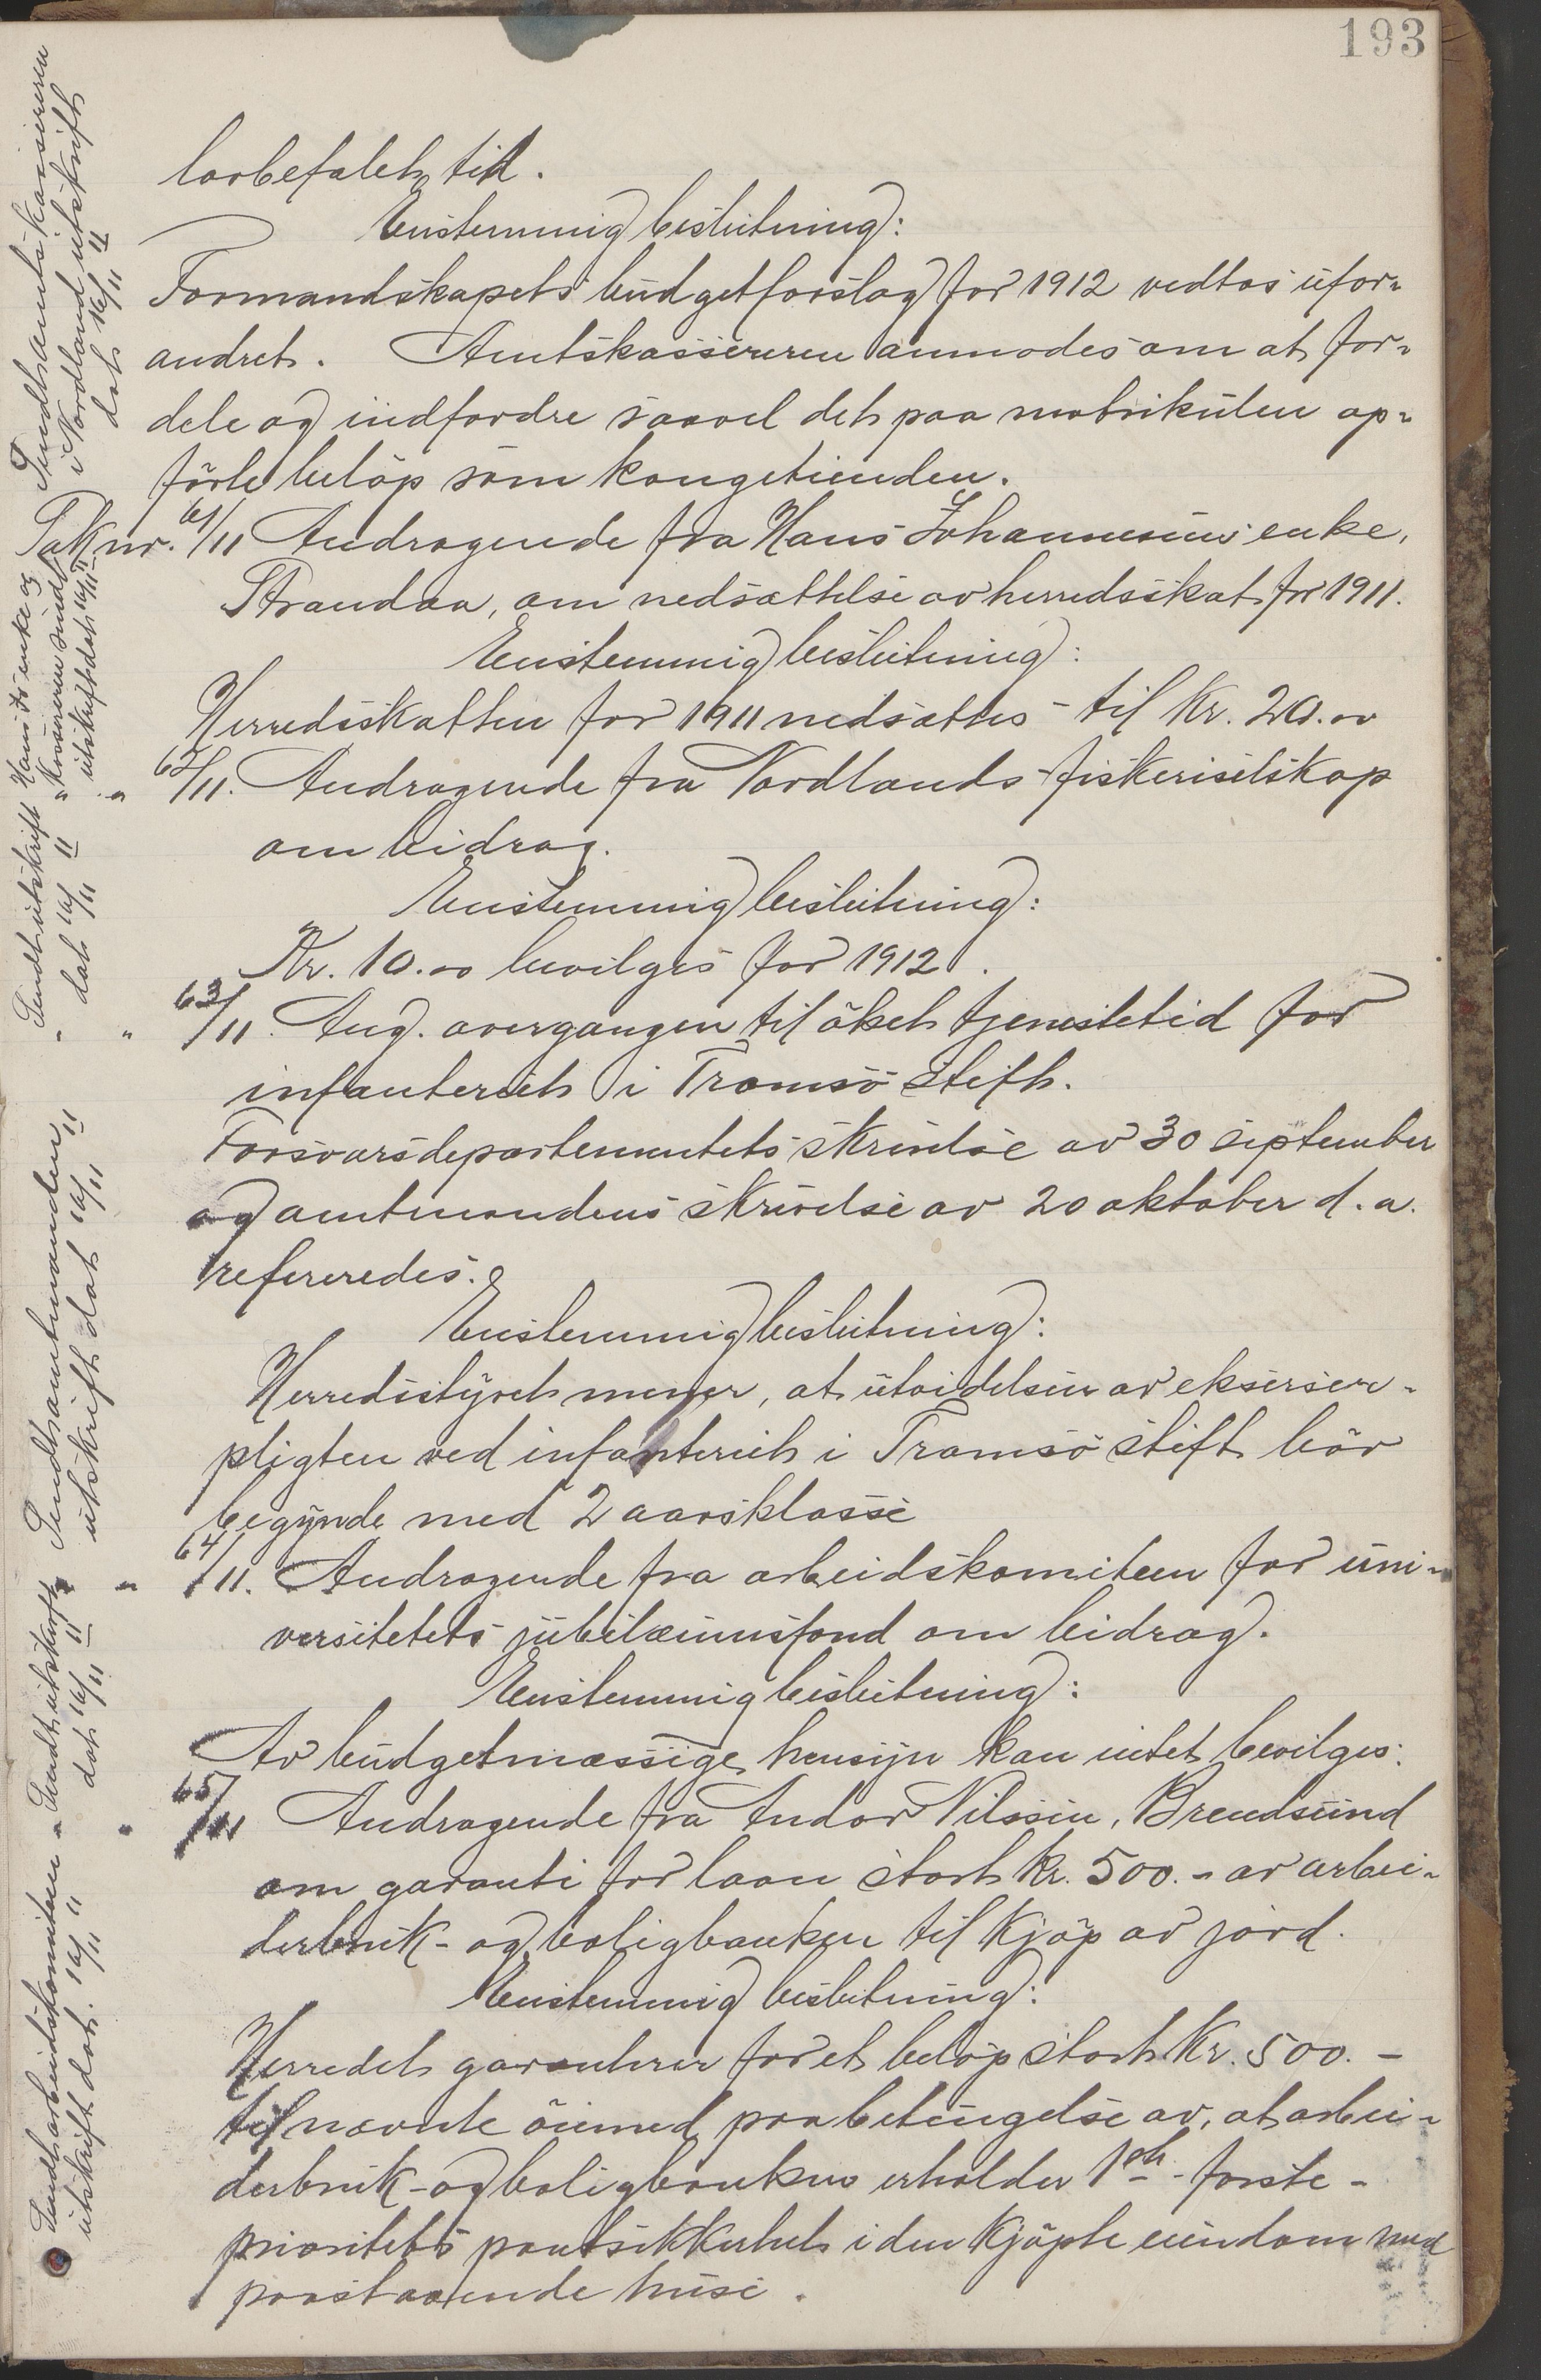 193
lovbefalet til.
Enstemmig beslutning:
Formandskapets budgetforslag for 1912 vedtas ufor-
andret. Amtskassereren anmodes om at for-
dele og indfordre saavel det paa matrikulen op-
førte beløp som kongetienden.
Sak nr. 61/11 Andragende fra Hans Johannesens enke,
Strandaa, om nedsættelse av herredsskat for 1911.
Enstemmig beslutning:
Herredsskatten for 1911 nedsættes til kr. 20.00
62/11. Andragende fra Nordlands fiskeriselskap
om bidrag.
Enstemmig beslutning:
Kr. 10.00 bevilges for 1912.
" 63/11. Ang. overgangen til øket tjenestetid for
infanteriet i Tromsø stift.
Forsvarsdepartementets skrivelse av 30 september
og amtmandens skrivelse av 20 oktober d.a.
refereredes.
Enstemmig beslutning:
Herredsstyret mener, at utvidelsen av eksersere-
pligten ved infanteriet i Tromsø stift bør
begynde med 2 aarsklasse
" 64/11. Andragende fra arbeidskomiteen for uni-
versitetets jubilæumsfond om bidrag.
Enstemmig beslutning:
Av budgetmæssige hensyn kan intet bevilges.
" 65/11 Andragende fra Andor Nilssen, Brendsund
om garanti for laan stort kr. 500.- av arbei-
derbruk- og boligbanken til kjøp av jord.
Enstemmig beslutning:
Herredet garanterer for et beløp stort kr. 500.-
til nævnte øiemed paa betingelse av, at arbei-
derbruk- og boligbanken erholder 1ste - første -
prioritets pantsikkerhet i den kjøpte eiendom med
paastaaende huse.
Sendt amtskassereren
i Nordland utskrift
dat 16/11 11
Sendt utskrift Hans Js enke og
" kassereren sendt
utskrift dat 16/11 11
" Sendt utskrift
dat 16/11 11
Sendt amtmanden
utskrift dat 16/11 11
Sendt arbeidskomiteen
utskrift dat. 16/11 11
" Sendt utskrift
dat 16/11 11